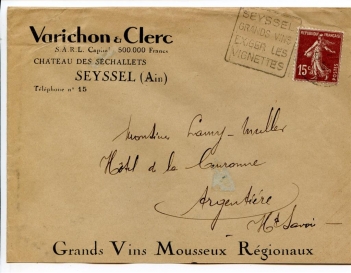 Varichon & Clerc
S.A.R.L. Capital 500.000 Francs
CHATEAU DES SECHALLETS
SEYSSEL (Ain)
Téléphone n° 15
SEYSSEL
GRANDS VINS
LES
VIGNETTES
15
Monsieur Lamy-Muller
Hôtel de la Couronne
Argentière
Hte Savoie
Grands Vins Mousseux Régionaux